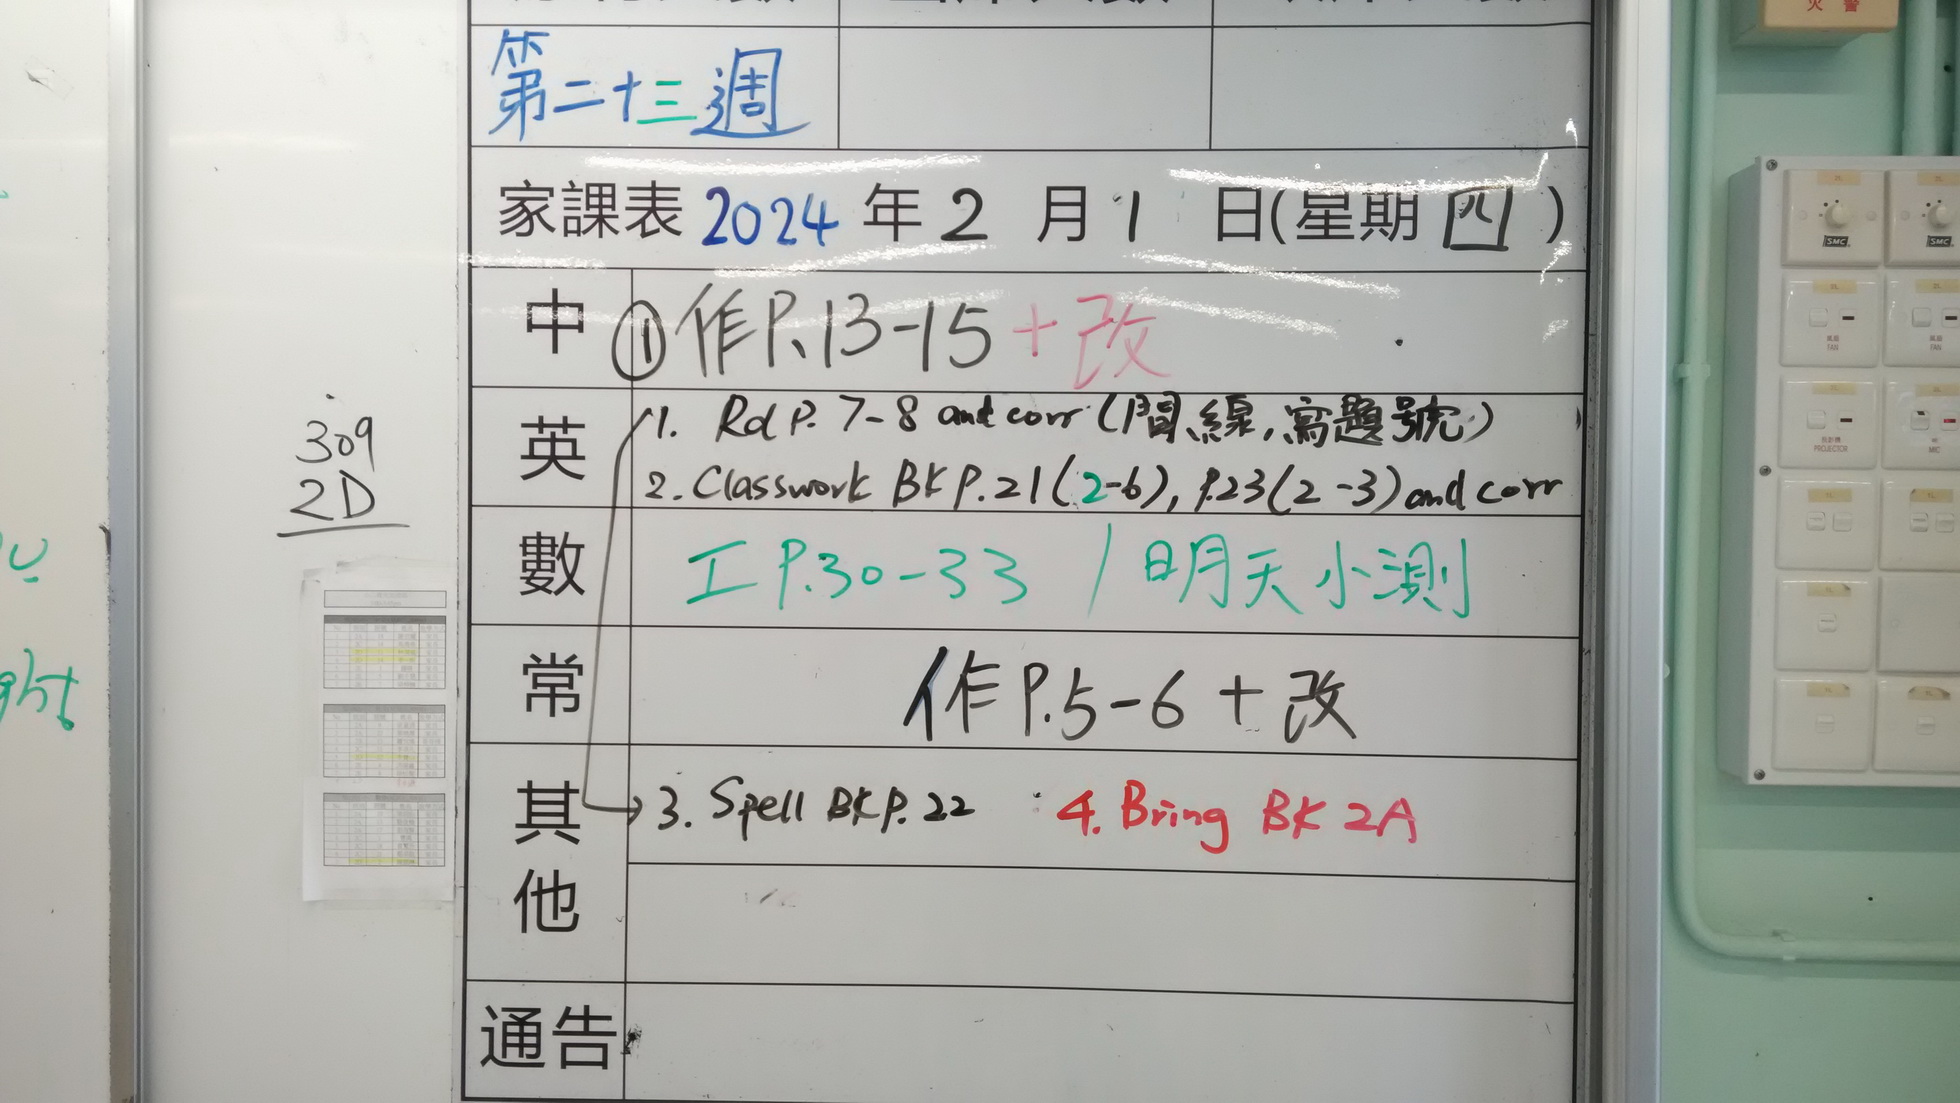 火 警
第二十三週
家課表 2024 年 2 月 1 日(星期 四 )
中 ① 作P.13-15 + 改
英 1. Rd P. 7-8 and corr (間線,寫題號)
2. Classwork BK P.21 (2-6), P.23 (2-3) and corr
數 工 P.30-33 / 明天小測
常 作 P.5-6 + 改
其他 3. Spell BK P. 22 4. Bring BK 2A
通告
309
2D
SMC
SMC
FAN
FAN
PROJECTOR
MIC